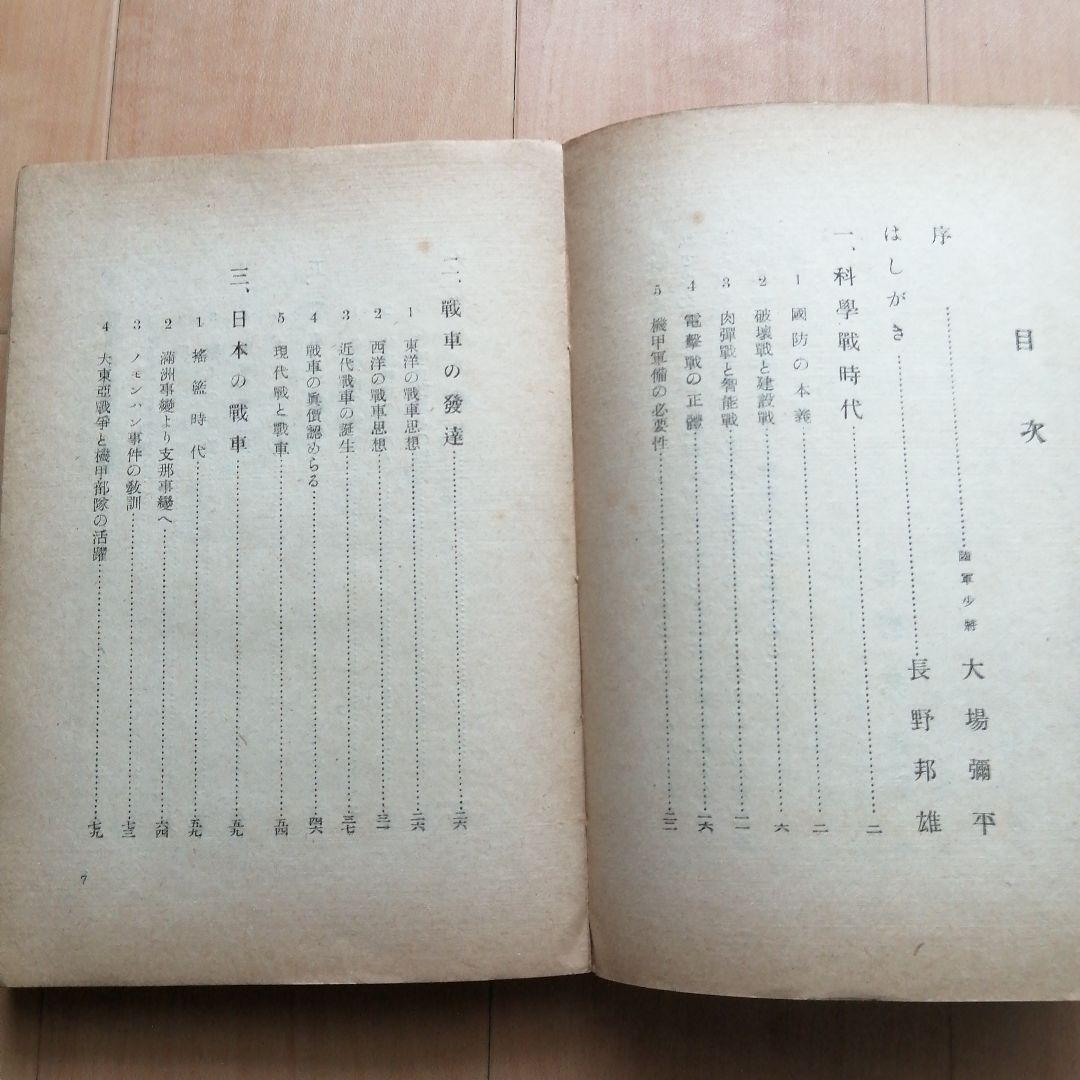 目次
序……陸軍少將 大場彌平
はしがき……長野邦雄
一、科學戰時代……二
1 國防の本義……二
2 破壞戰と建設戰……六
3 肉彈戰と智能戰……一一
4 電擊戰の正體……一六
5 機甲軍備の必要性……二二
二、戰車の發達……二六
1 東洋の戰車思想……二六
2 西洋の戰車思想……三一
3 近代戰車の誕生……三七
4 戰車の眞價認めらる……四六
5 現代戰と戰車……五四
三、日本の戰車……五九
1 搖籃時代……五九
2 滿洲事變より支那事變へ……六四
3 ノモンハン事件の敎訓……七三
4 大東亞戰爭と機甲部隊の活躍……七九
7